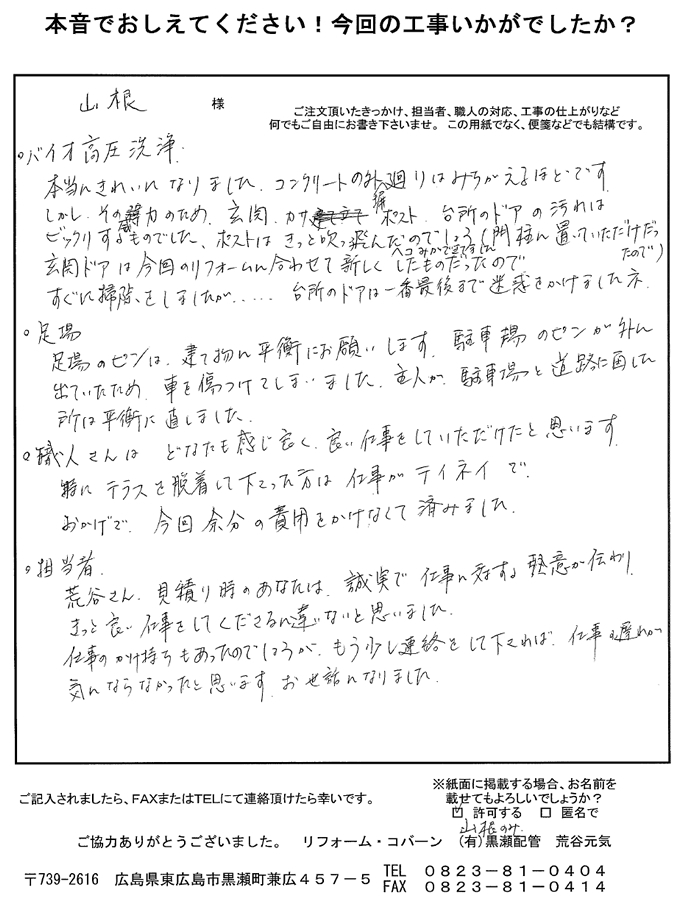 本音でおしえてください！今回の工事いかがでしたか？
山根 様
ご注文頂いたきっかけ、担当者、職人の対応、工事の仕上がりなど
何でもご自由にお書き下さいませ。この用紙でなく、便箋などでも結構です。
○バイオ高圧洗浄.
本当にきれいになりました. コンクリートの外廻りはみちがえるほどです
しかし. その威力のため. 玄関. ポスト. 台所のドアの汚れは
ビックリするものでした、ポストはきっと吹っ飛んだのでしょう(門柱に置いていただけだったので)
ヘコみができてました
玄関ドアは今回のリフォームに合わせて新しくしたものだったので
すぐに掃除をしましたが..... 台所のドアは一番最後まで迷惑をかけましたネ.
○足場
足場のピンは. 建て物に平衡にお願いします. 駐車場のピンが外に
出ていたため. 車を傷つけてしまいました. 主人が. 駐車場と道路に面した
所は平衡に直しました.
○職人さんは どなたも感じ良く. 良い仕事をしていただけたと思います.
特にテラスを脱着して下さった方は仕事がテイネイで.
おかげで. 今回余分の費用をかけなくて済みました.
○担当者.
荒谷さん. 見積り時のあなたは. 誠実で仕事に対する熱意が伝わり.
きっと良い仕事をしてくださるに違いないと思いました.
仕事のかけ持ちもあったのでしょうが. もう少し連絡をして下されば. 仕事の遅れが
気にならなかったと思います. お世話になりました.
ご記入されましたら、FAXまたはTELにて連絡頂けたら幸いです。
※紙面に掲載する場合、お名前を
載せてもよろしいでしょうか？
☑ 許可する □ 匿名で
山根のみ.
ご協力ありがとうございました。 リフォーム・コバーン (有)黒瀬配管 荒谷元気
〒739-2616 広島県東広島市黒瀬町兼広４５７－５ TEL ０８２３－８１－０４０４
FAX ０８２３－８１－０４１４